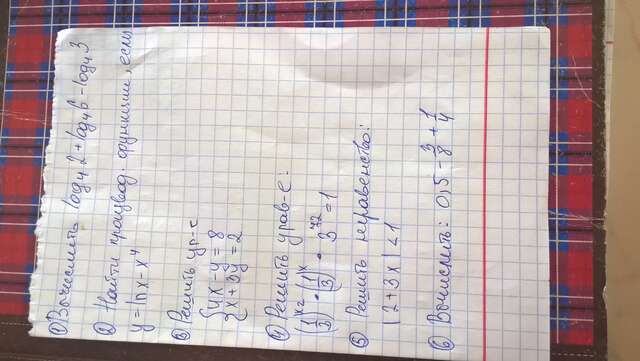 ① Вычислить log₄2+log₄6-log₄3
② Найти производ. функции, если
y = ln x - x⁴
③ Решить ур-е
{ 4x - y = 8
{ x + 3y = 2
④ Решить урав-е:
⑤ Решить неравенство:
|2+3x|<1
⑥ Вычислить: 0,5 - 3/8 + 1/4